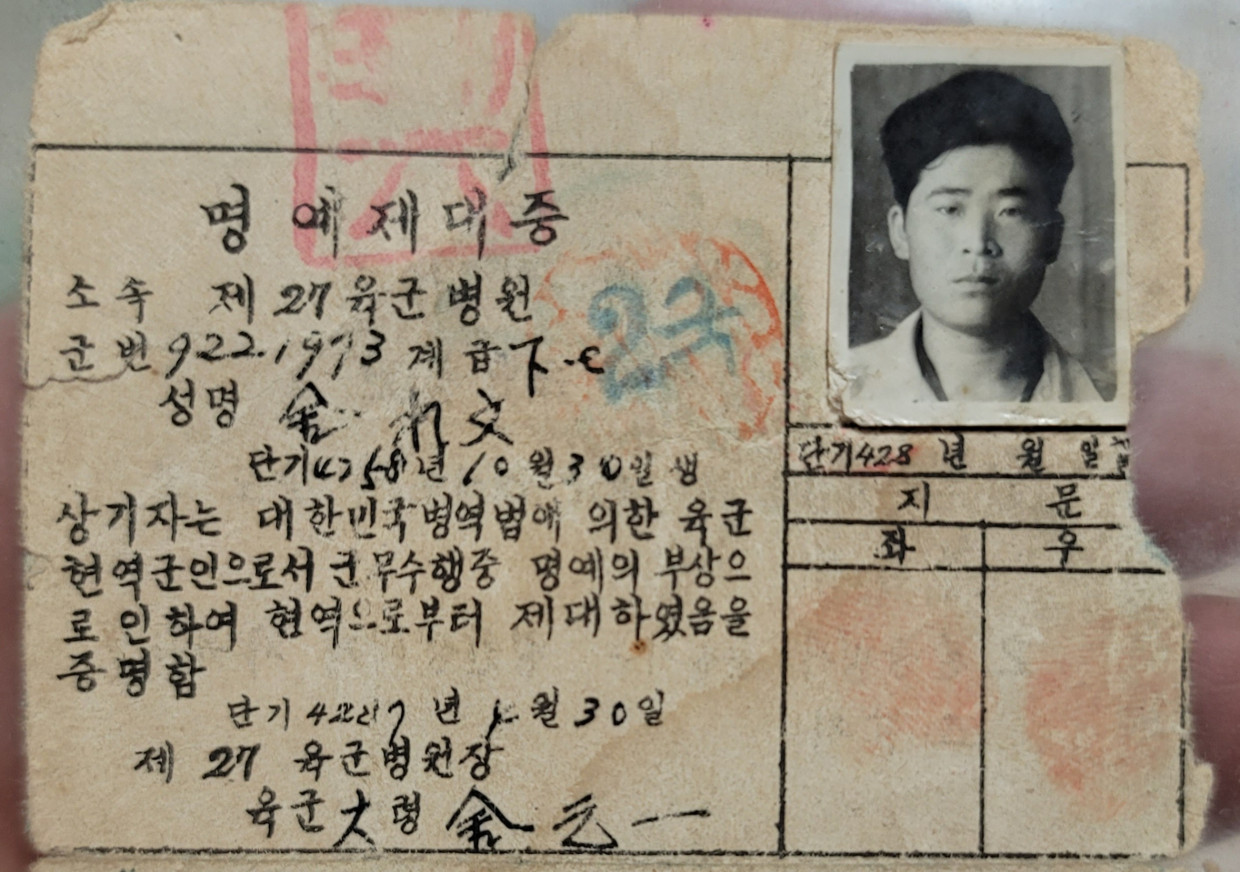 명예제대증
소속 제27육군병원
군번 9221993 계급 下士
성명 金 文
단기4258년 10월30일생
상기자는 대한민국병역법에 의한 육군
현역군인으로서 군무수행중 명예의 부상으
로 인하여 현역으로부터 제대하였음을
증명함
단기 42 7년 월 30일
제 27 육군병원장
육군大령 金元一
단기428 년 월 일
지 문
좌 우